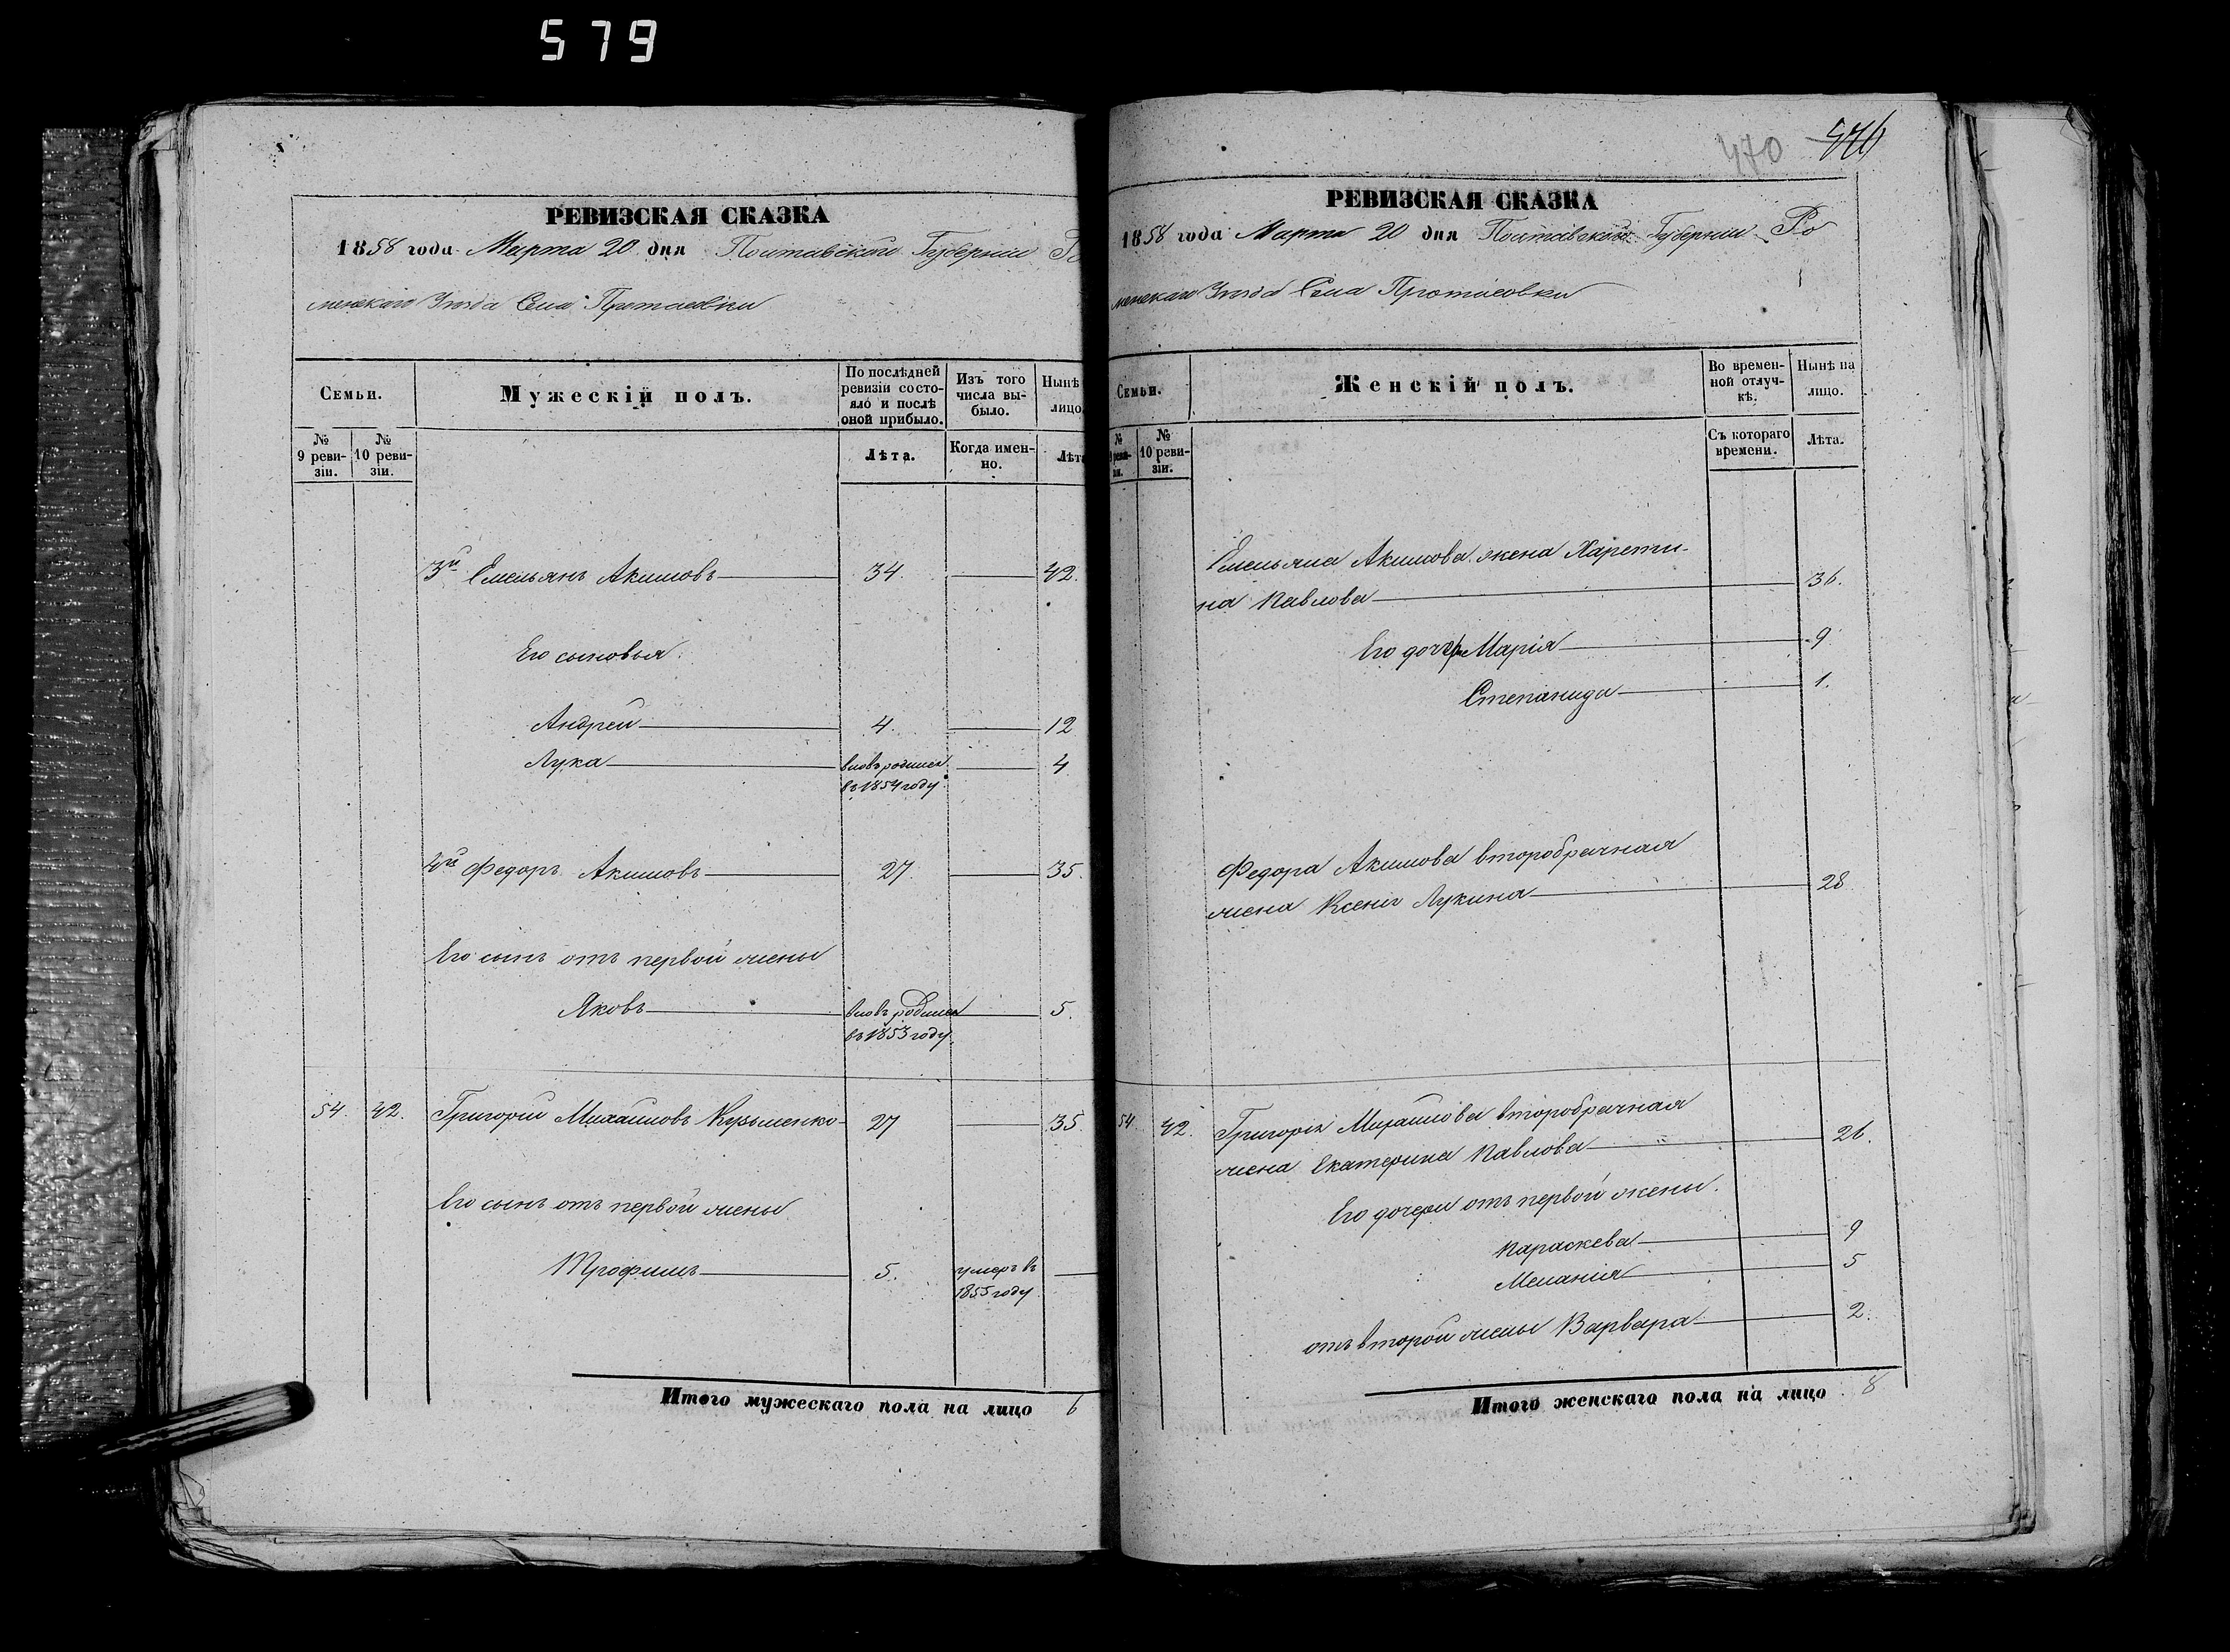 579
РЕВИЗСКАЯ СКАЗКА
1858 года Марта 20 дня Полтавской Губернии Ро
менскаго Уѣзда Села Протасовки
Семьи.
Мужескій полъ.
По послѣдней ревизіи состояло и послѣ оной прибыло.
Изъ того числа выбыло.
Нынѣ
лицо
№ 9 ревизіи.
№ 10 ревизіи.
Лѣта.
Когда именно.
Лѣта
3й Емельянъ Акимовъ 34. 42.
Его сыновья
Андрей 4. 12
Лука вновь родился въ 1854 году 4
4й Федоръ Акимовъ 27. 35.
Его сынъ отъ первой жены
Яковъ вновь родился въ 1853 году. 5.
54. 42. Григорій Михайловъ Кузьменко 27 35.
Его сынъ отъ первой жены
Трофимъ 5. умеръ въ 1855 году
Итого мужескаго пола на лицо 6
470 476
РЕВИЗСКАЯ СКАЗКА
1858 года Марта 20 дня Полтавской Губернии Ро
менскаго Уѣзда Села Протасовки
Семьи.
Женскій полъ.
Во временной отлучкѣ.
Нынѣ на лицо.
№ 9 ревизіи.
№ 10 ревизіи.
Съ котораго времени.
Лѣта.
Емельяна Акимова жена Харити-
на Павлова 36.
Его дочери Марія 9.
Степанида 1.
Федора Акимова второбрачная
жена Ксенія Лукина 28
54. 42. Григорія Михайлова второбрачная
жена Екатерина Павлова 26.
Его дочери отъ первой жены.
Параскева 9
Меланія 5
отъ второй жены Варвара 2.
Итого женскаго пола на лицо 8